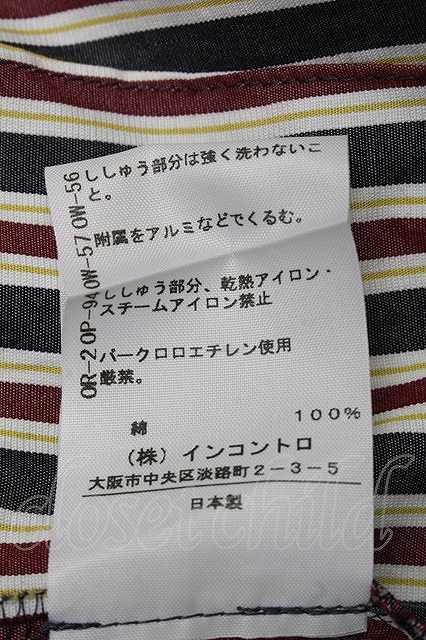 OR-2 OP-94 OW-57 OW-56
ししゅう部分は強く洗わないこ
と。
附属をアルミなどでくるむ。
ししゅう部分、乾熱アイロン・
スチームアイロン禁止
パークロロエチレン使用
厳禁。
綿 100%
(株)インコントロ
大阪市中央区淡路町2-3-5
日本製
closet child